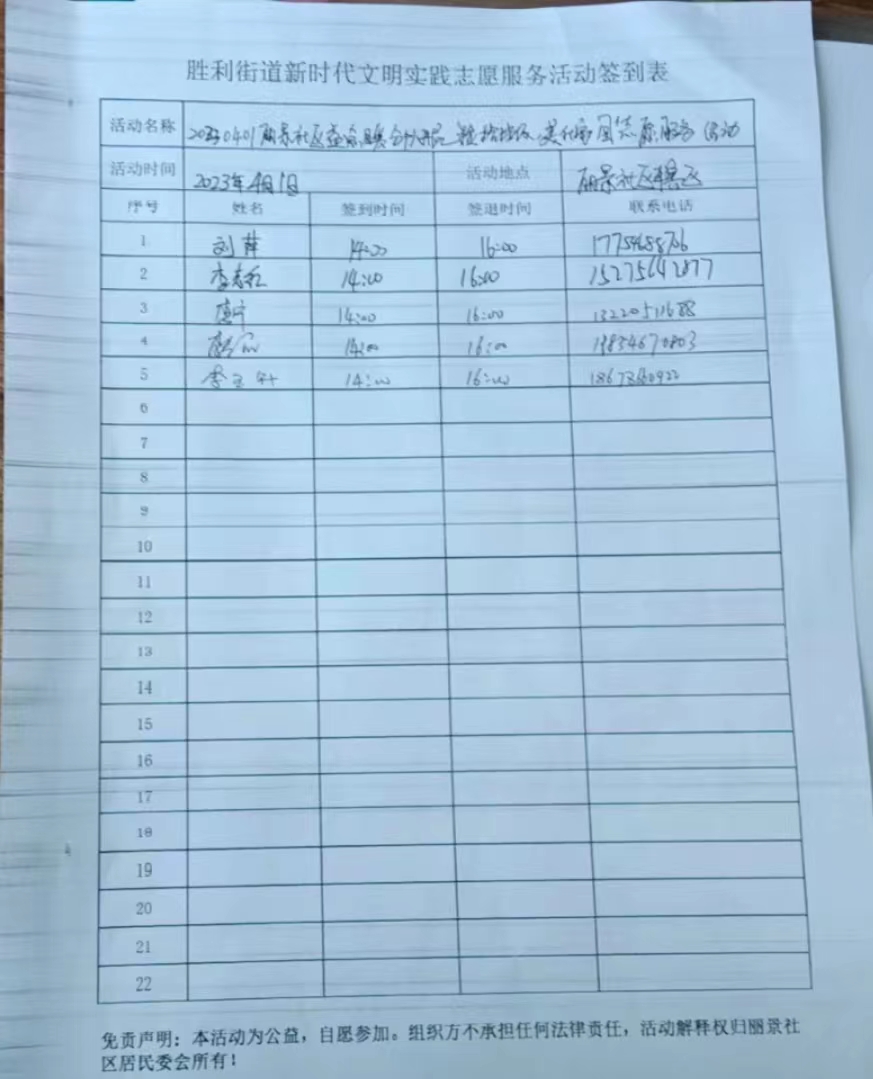 胜利街道新时代文明实践志愿服务活动签到表
活动名称 20230401丽景社区 捡拾垃圾 美化家园志愿服务活动
活动时间 2023年4月1日 活动地点 丽景社区辖区
序号 姓名 签到时间 签退时间 联系电话
1 刘萍 14:00 16:00
2 李志红 14:00 16:00 15275642877
3 唐宁 14:00 16:00 13220511688
4 14:00 16:00 13854670803
5 李 14:00 16:00
6
7
8
9
10
11
12
13
14
15
16
17
18
19
20
21
22
免责声明：本活动为公益，自愿参加。组织方不承担任何法律责任，活动解释权归丽景社
区居民委会所有！